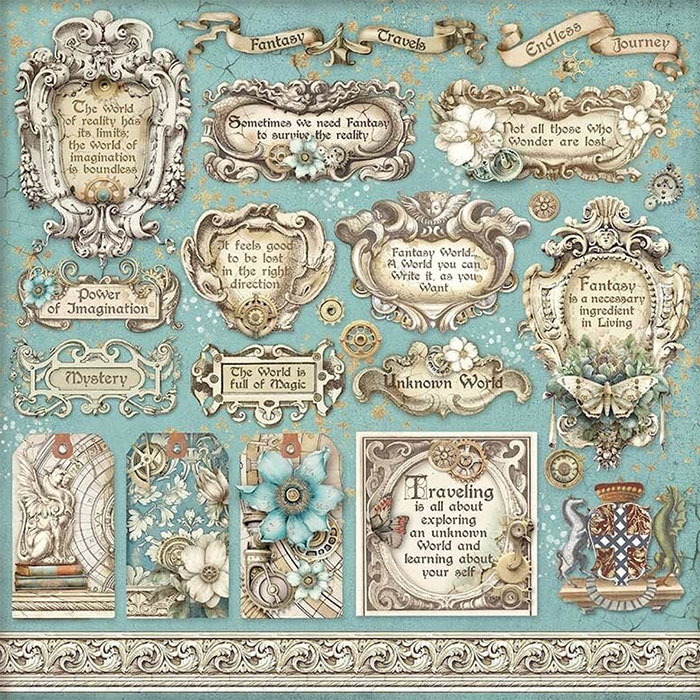 Fantasy Travels
Endless Journey
The World
of reality has
its limits;
the World of
imagination
is boundless
Sometimes we need Fantasy
to survive the reality
Not all those Who
Wonder are lost
It feels good
to be lost
in the right
direction
Fantasy World...
A World you can
Write it, as you
Want
Fantasy
is a necessary
ingredient
in Living
Power
of Imagination
Mystery
The World is
full of Magic
Unknown World
Traveling
is all about
exploring
an unknown
World and
learning about
your self